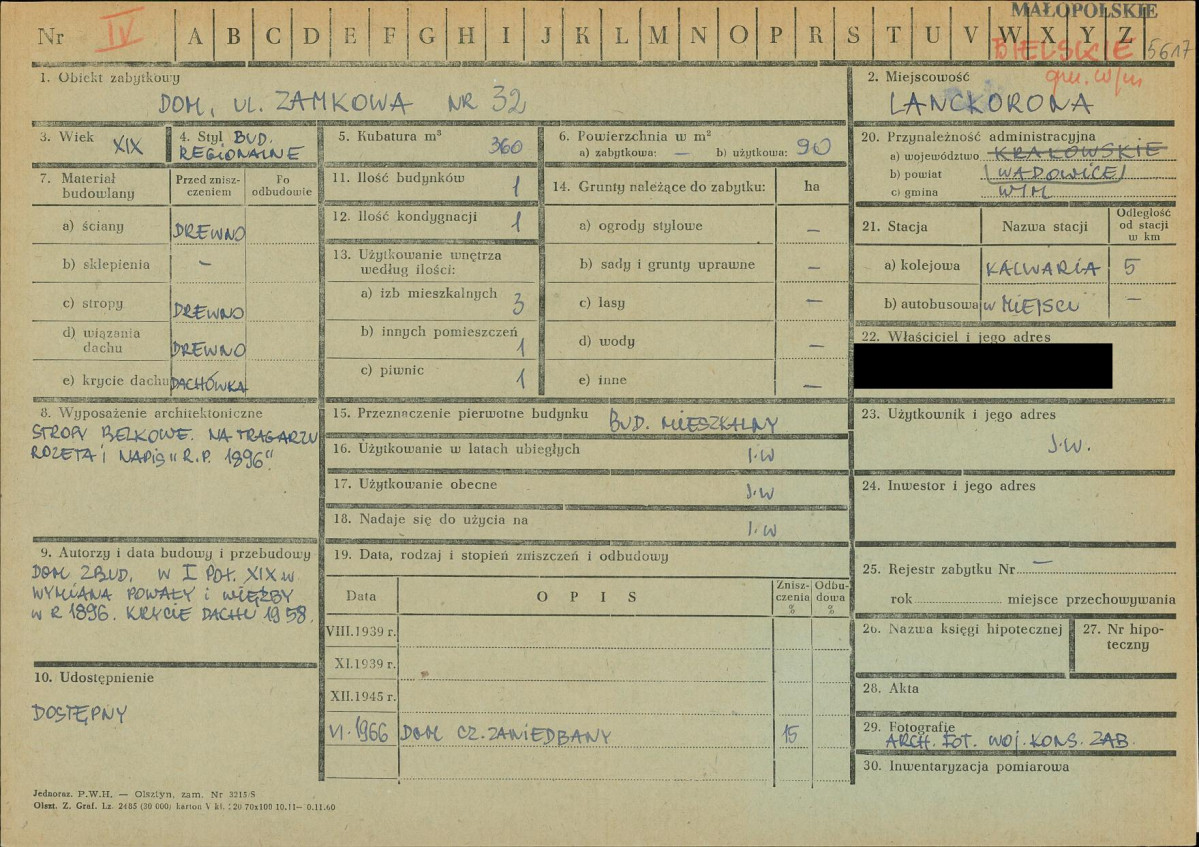 MAŁOPOLSKIE
Nr IV A B C D E F G H I J K L M N O P R S T U V W X Y Z
BIELSKIE 5617
gm. w/m
1. Obiekt zabytkowy
DOM, UL. ZAMKOWA NR 32
2. Miejscowość
LANCKORONA
3. Wiek XIX
4. Styl BUD. REGIONALNE
5. Kubatura m³ 360
6. Powierzchnia w m²
a) zabytkowa: — b) użytkowa: 90
20. Przynależność administracyjna
a) województwo KRAKOWSKIE
b) powiat WADOWICE
c) gmina W/M
7. Materiał budowlany
Przed zniszczeniem
Po odbudowie
a) ściany DREWNO
b) sklepienia —
c) stropy DREWNO
d) wiązania dachu DREWNO
e) krycie dachu DACHÓWKA
11. Ilość budynków 1
12. Ilość kondygnacji 1
13. Użytkowanie wnętrza według ilości:
a) izb mieszkalnych 3
b) innych pomieszczeń 1
c) piwnic 1
14. Grunty należące do zabytku: ha
a) ogrody stylowe —
b) sady i grunty uprawne —
c) lasy —
d) wody —
e) inne —
21. Stacja Nazwa stacji Odległość od stacji w km
a) kolejowa KALWARIA 5
b) autobusowa W MIEJSCU —
22. Właściciel i jego adres
8. Wyposażenie architektoniczne
STROPY BELKOWE. NA TRAGARZU
ROZETA I NAPIS "R.P. 1896".
15. Przeznaczenie pierwotne budynku BUD. MIESZKALNY
16. Użytkowanie w latach ubiegłych J.W
17. Użytkowanie obecne J.W
18. Nadaje się do użycia na J.W
23. Użytkownik i jego adres
J.W.
24. Inwestor i jego adres
9. Autorzy i data budowy i przebudowy
DOM ZBUD. W I POŁ. XIX W
WYMIANA POWAŁY I WIĘŹBY
W R 1896. KRYCIE DACHU 1958.
19. Data, rodzaj i stopień zniszczeń i odbudowy
Data OPIS Zniszczenia % Odbudowa %
VIII.1939 r.
XI.1939 r.
XII.1945 r.
VI.1966 DOM CZ. ZANIEDBANY 15
25. Rejestr zabytku Nr —
rok miejsce przechowywania
26. Nazwa księgi hipotecznej
27. Nr hipoteczny
10. Udostępnienie
DOSTĘPNY
28. Akta
29. Fotografie
ARCH. FOT. WOJ. KONS. ZAB.
30. Inwentaryzacja pomiarowa
Jednoraz. P.W.H. — Olsztyn, zam. Nr 3215/S
Olszt. Z. Graf. Lz. 2485 (30 000) karton V kl. 220 70x100 10.11—